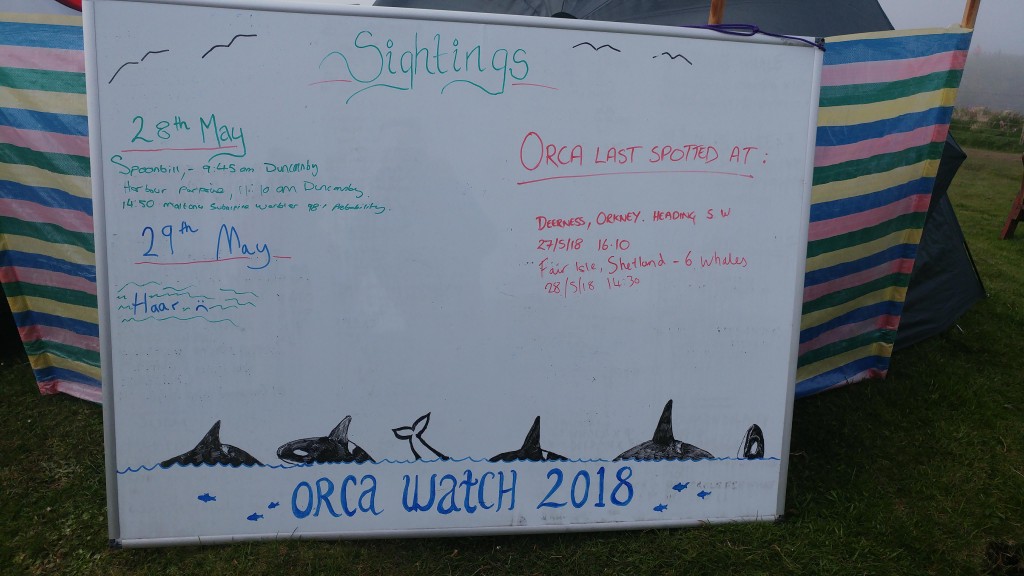 Sightings
28th May
Spoonbill, - 9:45 am Duncansby
Harbour Porpoise, 11:10 am Duncansby.
14:50 Warbler Probability.
29th May
Haar
ORCA LAST SPOTTED AT:
DEERNESS, ORKNEY. HEADING SW
27/5/18 16.10
Fair Isle, Shetland - 6 Whales
28/5/18 14:30
ORCA WATCH 2018